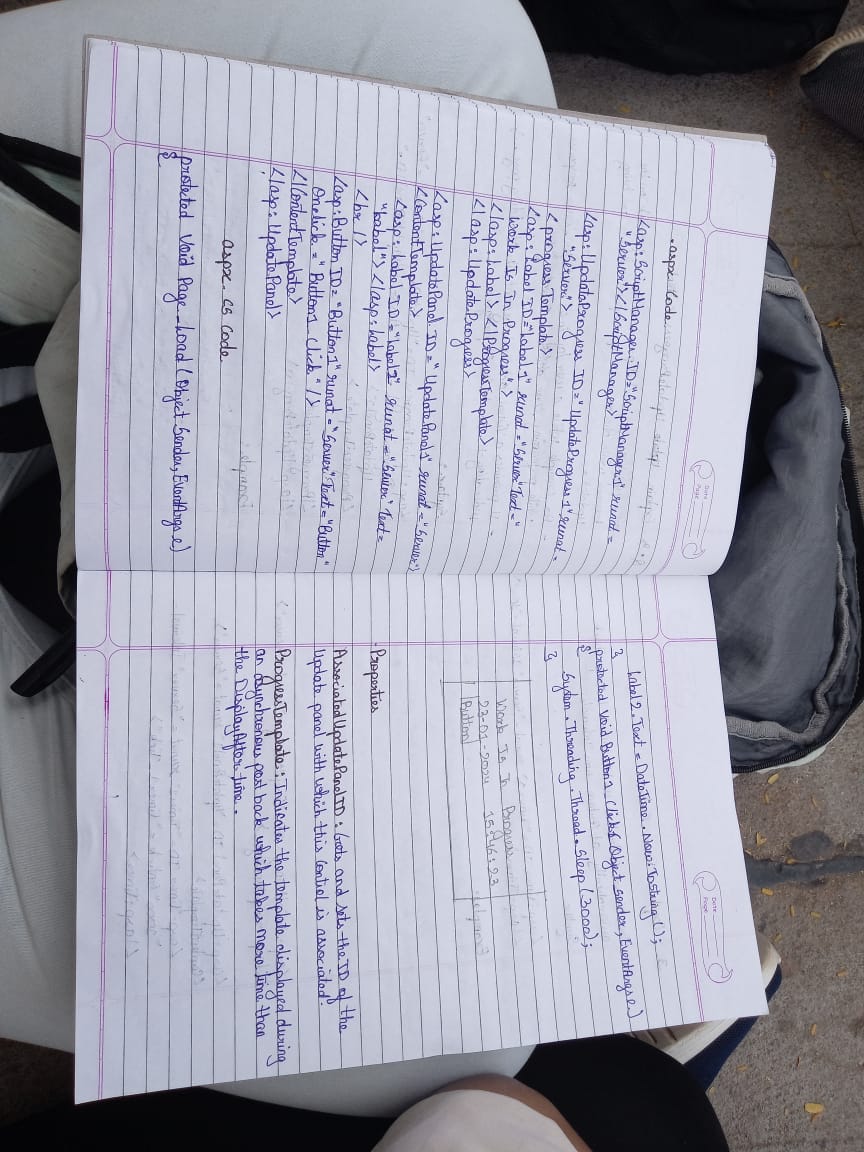 .aspx Code
<asp:ScriptManager ID="ScriptManager1" runat=
"Server"></ScriptManager>
<asp:UpdateProgress ID="UpdateProgress1" runat=
"Server">
<progressTemplate>
<asp:Label ID="Label1" runat="Server" Text="
Work Is In Progress">
</asp:Label> </ProgressTemplate>
</asp:UpdateProgress>
<asp:UpdatePanel ID="UpdatePanel1" runat="Server">
<ContentTemplate>
<asp:Label ID="Label2" runat="Server" Text=
"Label"> </asp:Label>
<hr />
<asp:Button ID="Button1" runat="Server" Text="Button"
Onclick="Button1_Click" />
</ContentTemplate>
</asp:UpdatePanel>
aspx.cs Code
protected Void Page_Load (Object Sender, EventArgs e)
{
Date
Page
Date
Page
Label2.Text = DateTime.Now.ToString();
}
protected Void Button1_Click( Object Sender, EventArgs e)
{
System.Threading.Thread.Sleep(3000);
}
Work Is In Progress
23-01-2024 15:46:23
Button
Properties
AssociatedUpdatePanelID : Gets and sets the ID of the
Update panel with which this Control is associated.
ProgressTemplate : Indicates the template displayed during
an asynchronous post back which takes more time than
the DisplayAfter time.